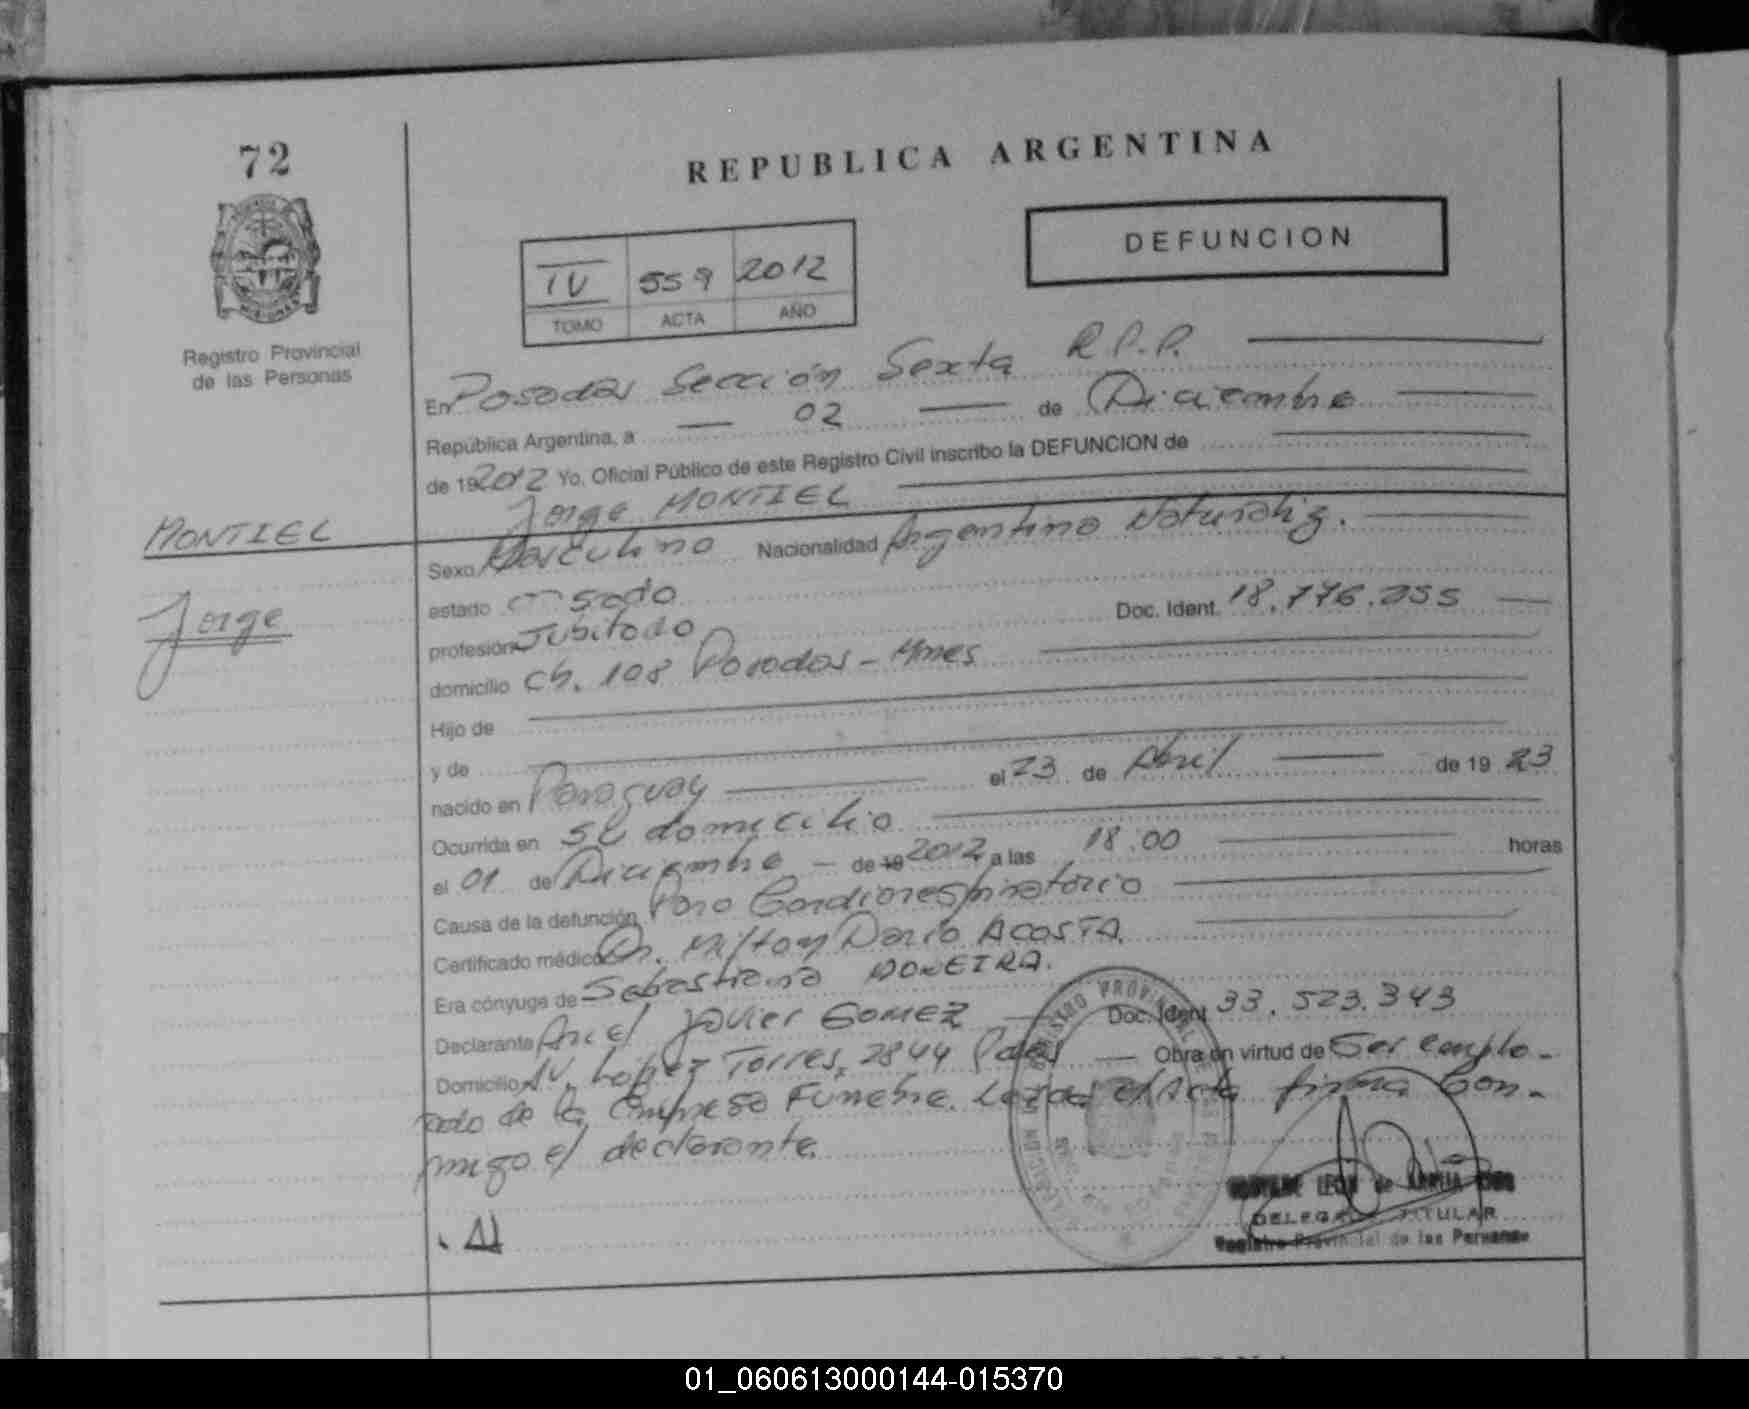 72
REPUBLICA ARGENTINA
DEFUNCION
IV 559 2012
TOMO ACTA AÑO
Registro Provincial
de las Personas
En Posadas Sección Sexta R.P.P.
República Argentina, a 02 de Diciembre
de 192012 Yo, Oficial Público de este Registro Civil inscribo la DEFUNCION de
Jorge MONTIEL
MONTIEL
Jorge
Sexo Masculino Nacionalidad Argentino Naturaliz.
estado casado
profesión Jubilado Doc. Ident. 18.776.255
domicilio Ch. 108 Posadas - Mnes
Hijo de
y de
nacido en Paraguay el 23 de Abril de 19 23
Ocurrida en su domicilio
el 01 de Diciembre de 19 2012 a las 18.00 horas
Causa de la defunción Paro Cardiorespiratorio
Certificado médico Dr. Milton Dario ACOSTA.
Era cónyuge de Sebastiana
Declarante Ariel Javier GOMEZ Doc. Ident. 33.523.343
Domicilio AV. López Torres, 2844 Pdas Obra en virtud de Ser emplo-
ado de la Empresa Fúnebre. Leída el Acta firma con-
migo el declarante.
LEON de
DELEGADA TITULAR
Registro Provincial de las Personas
01_060613000144-015370